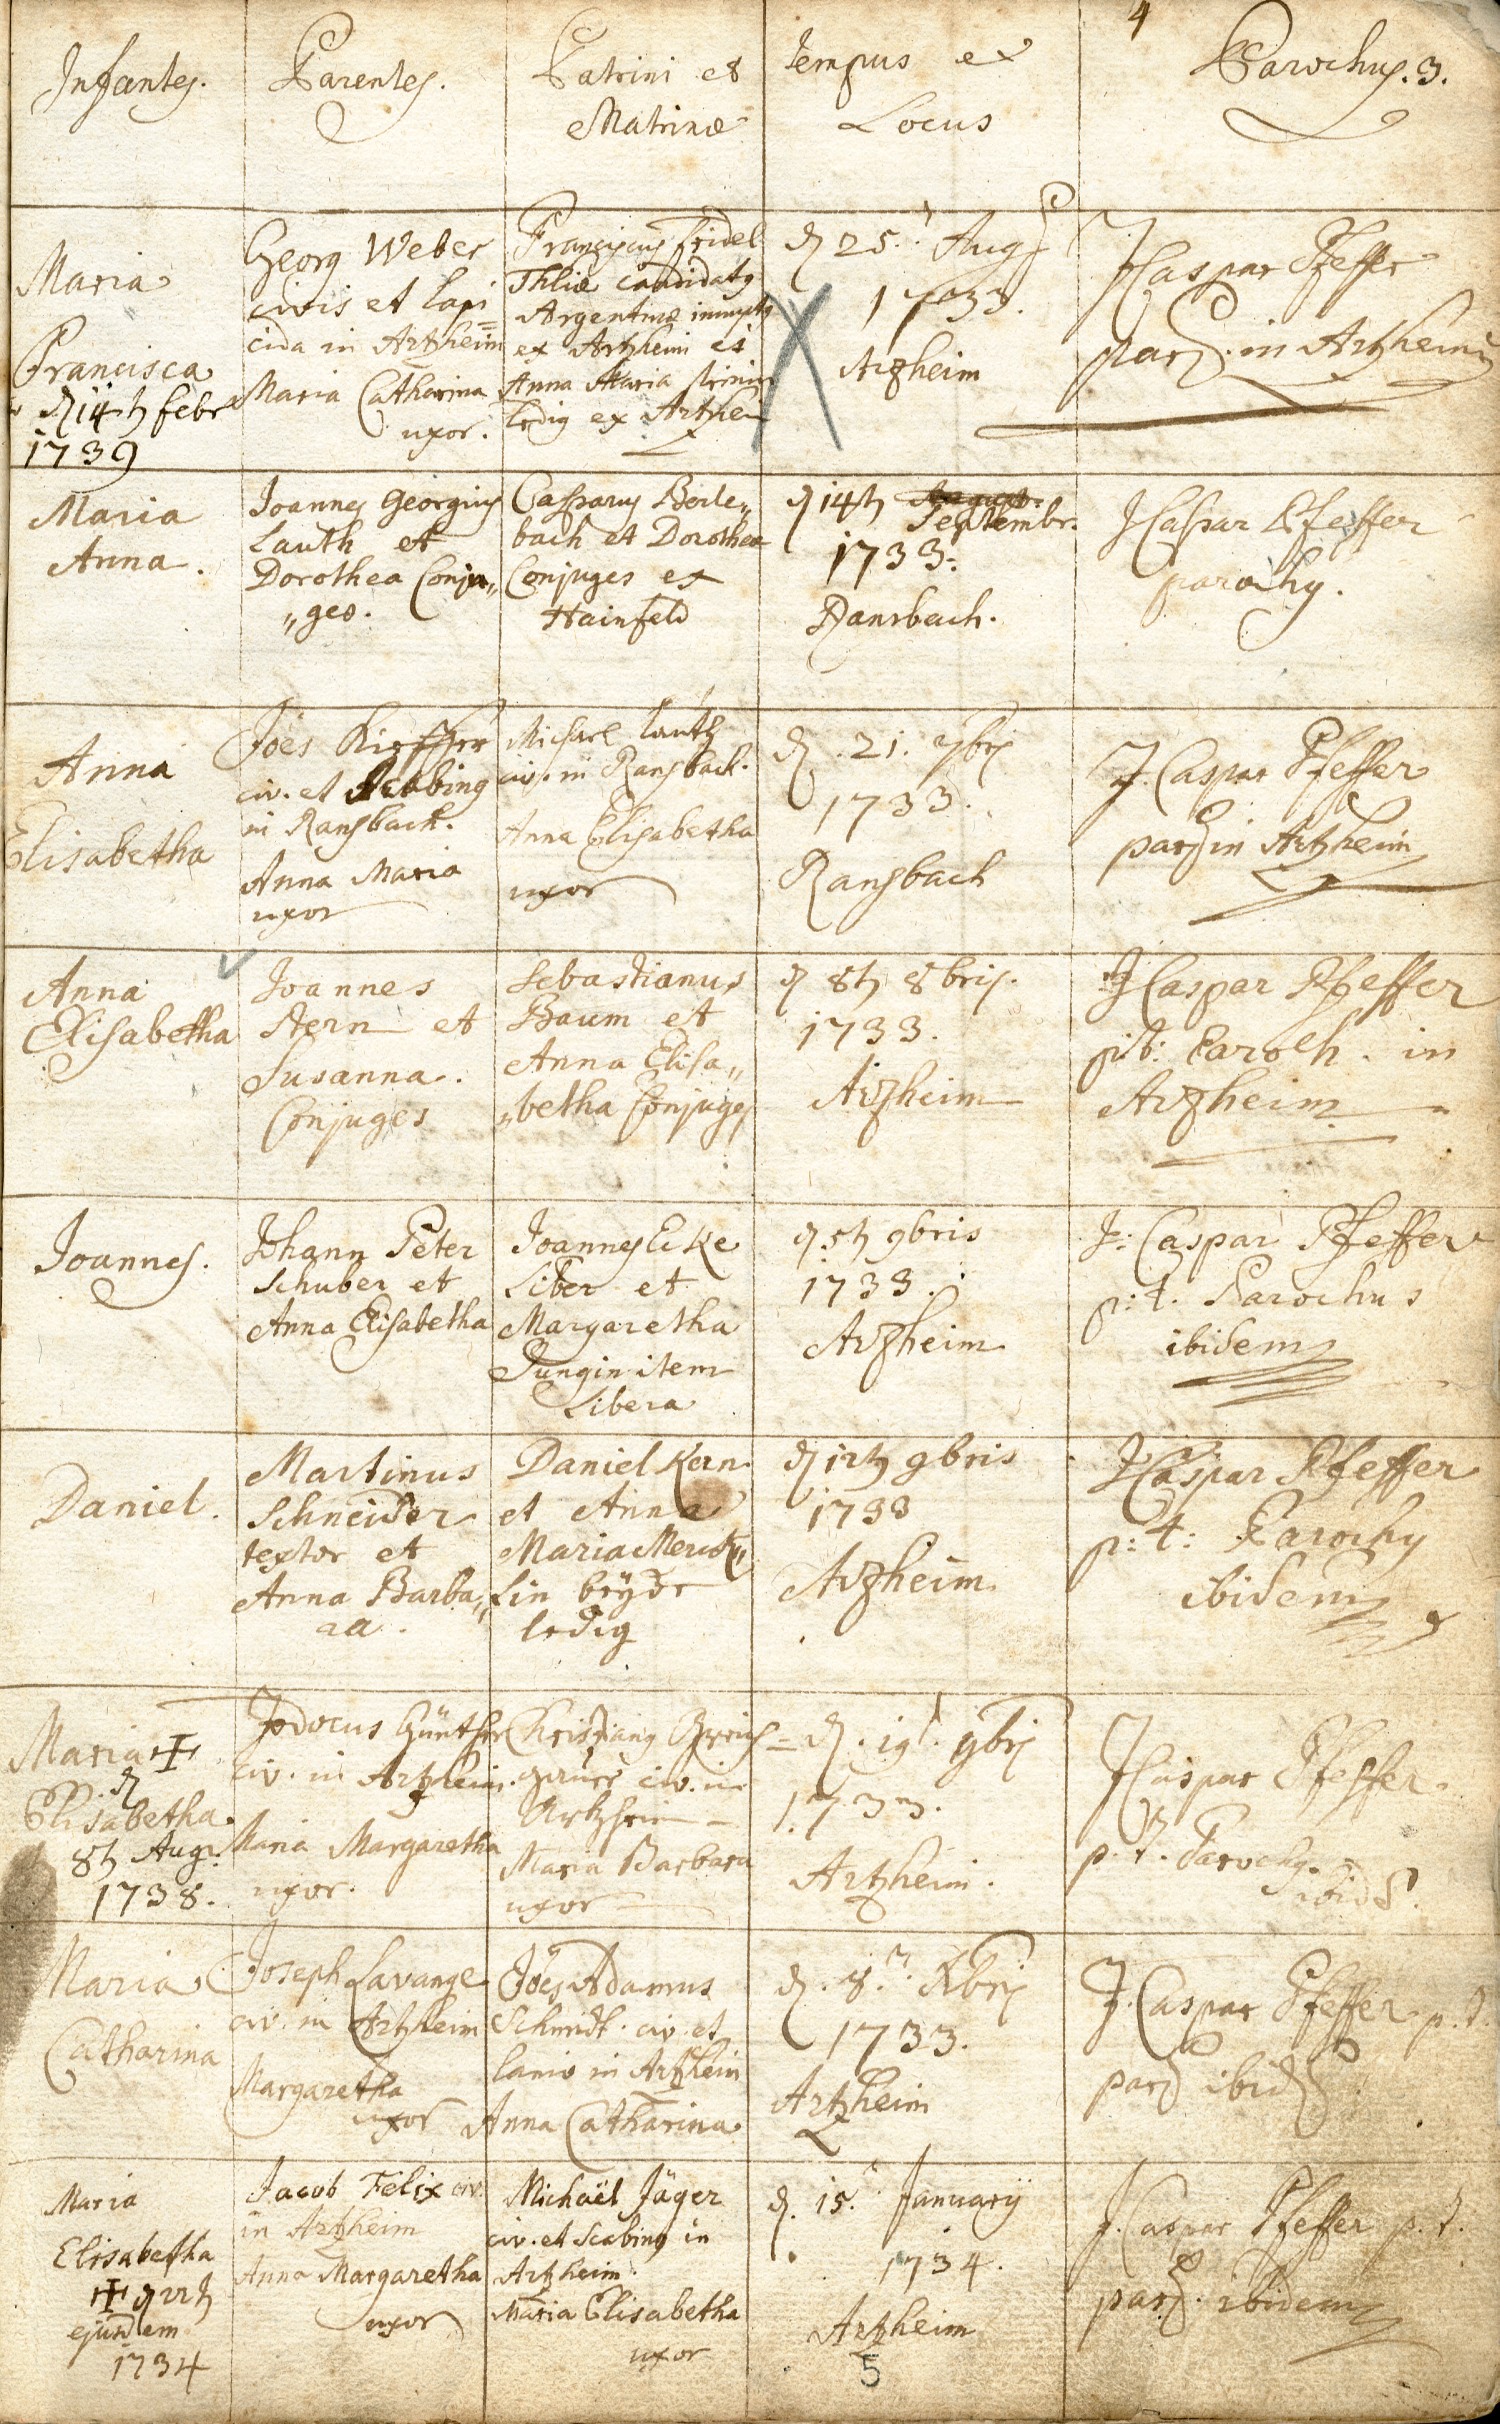 4
Infantes.
Parentes.
Patrini et
Matrinæ
tempus et
Locus
Parochus. 3.
Maria
Francisca
14th febr
1739
Georg Weber
civis et lapi=
cida in Artzheim
Maria Catharina
uxor.
Franciscus fridel
Thliæ candidatq
Argentinæ
ex Artzheim et
Anna Maria
ledig ex Artzheim
d 25. Aug
1733.
Arzheim
JCaspar Pfeffer
par. in Artzheim
Maria
Anna.
Joannes Georgius
Lauth et
Dorothea Conju„
„ges.
Casparus Beile„
bach et Dorothea
Conjuges ex
Hainfeld
d 14th August
Septembr.
1733.
Ransbach.
JCaspar Pfeffer
parochq.
Anna
Elisabetha
Joes Kieffer
civ. et Scabinq
in Ransbach.
Anna Maria
uxor
Michael Lauth
civ. in Ransbach.
Anna Elisabetha
uxor
d. 21. 7bris
1733.
Ransbach
J. Caspar Pfeffer
par in Artzheim
Anna
Elisabetha
Joannes
Stern et
Susanna.
Conjuges
Sebastianus
Baum et
Anna Elisa„
„betha Conjuges
d 8th 8bris.
1733.
Arzheim
JCaspar Pfeffer
p:t: Paroch. in
Arzheim
Joannes.
Johann Peter
Schuber et
Anna Elisabetha
Joannes Ecke
Liber et
Margaretha
Jungin item
Libera
d 5th 9bris
1733.
Arzheim
J: Caspar Pfeffer
p:t. Parochus
ibidem
Daniel.
Martinus
Schneider
textor et
Anna Barba„
ra.
Daniel Kern
et Anna
Maria
lin beyde
ledig
d 12th 9bris
1733
Arzheim
JCaspar Pfeffer
p:t: Parochq
ibidem
Maria ✝
d
Elisabetha
8th Aug:
1738.
Jodocus Günther
civ. in Artzheim.
Maria Margaretha
uxor.
Christianq
civ. in
Artzheim
Maria Barbara
uxor
d. 19. 9bris
1733.
Artzheim.
JCaspar Pfeffer.
p.t. Parochq.
ibid.
Maria
Catharina
Joseph Lavange
civ. in Artzheim
Margaretha
uxor
Joes Adamus
Schmidt. civ. et
lanio in Artzheim
Anna Catharina
d. 8. Xbris
1733.
Artzheim
J. Caspar Pfeffer p.t.
par ibid
Maria
Elisabetha
✝ d 22th
ejusdem
1734
Jacob Felix civ.
in Artzheim
Anna Margaretha
uxor
Michaël Jäger
civ. et Scabinq in
Artzheim.
Maria Elisabetha
uxor
d. 15. January
1734.
Artzheim
5
J. Caspar Pfeffer p.t.
par. ibidem